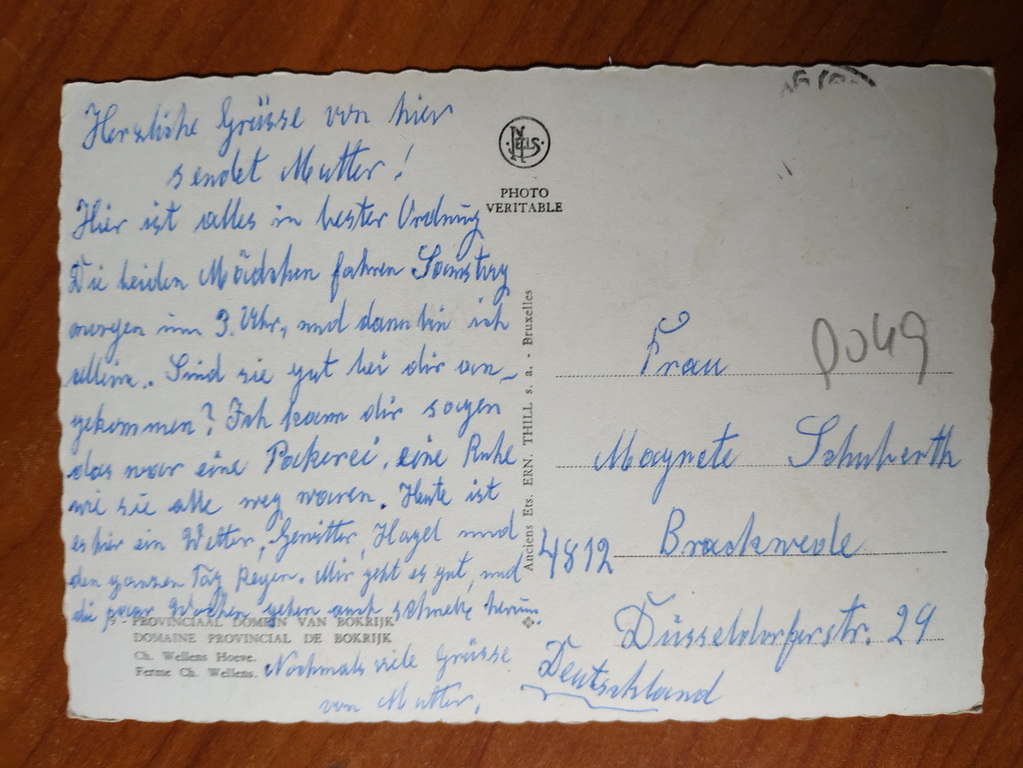 Herzliche Grüsse von hier
sendet Mutter!
Hier ist alles in bester Ordnung
Die beiden Mädchen fahren Samstag
morgen um 9. Uhr, und dann bin ich
alleine. Sind sie gut bei dir an-
gekommen? Ich kann dir sagen
das war eine Pakerei, eine Ruhe
wie sie alle weg waren. Heute ist
es hier ein Wetter, Gewitter, Hagel und
den ganzen Tag Regen. Mir geht es gut, und
die paar Wochen gehen auch schnelle herum.
Nochmals viele Grüsse
von Mutter.
PROVINCIAAL DOMEIN VAN BOKRIJK
DOMAINE PROVINCIAL DE BOKRIJK
Ch. Wellens Hoeve.
Ferme Ch. Wellens.
NELS
PHOTO
VERITABLE
Anciens Ets. ERN. THILL s. a. - Bruxelles
Frau
Magnete Schuberth
4812 Brackwede
Düsseldorferstr. 29
Deutschland